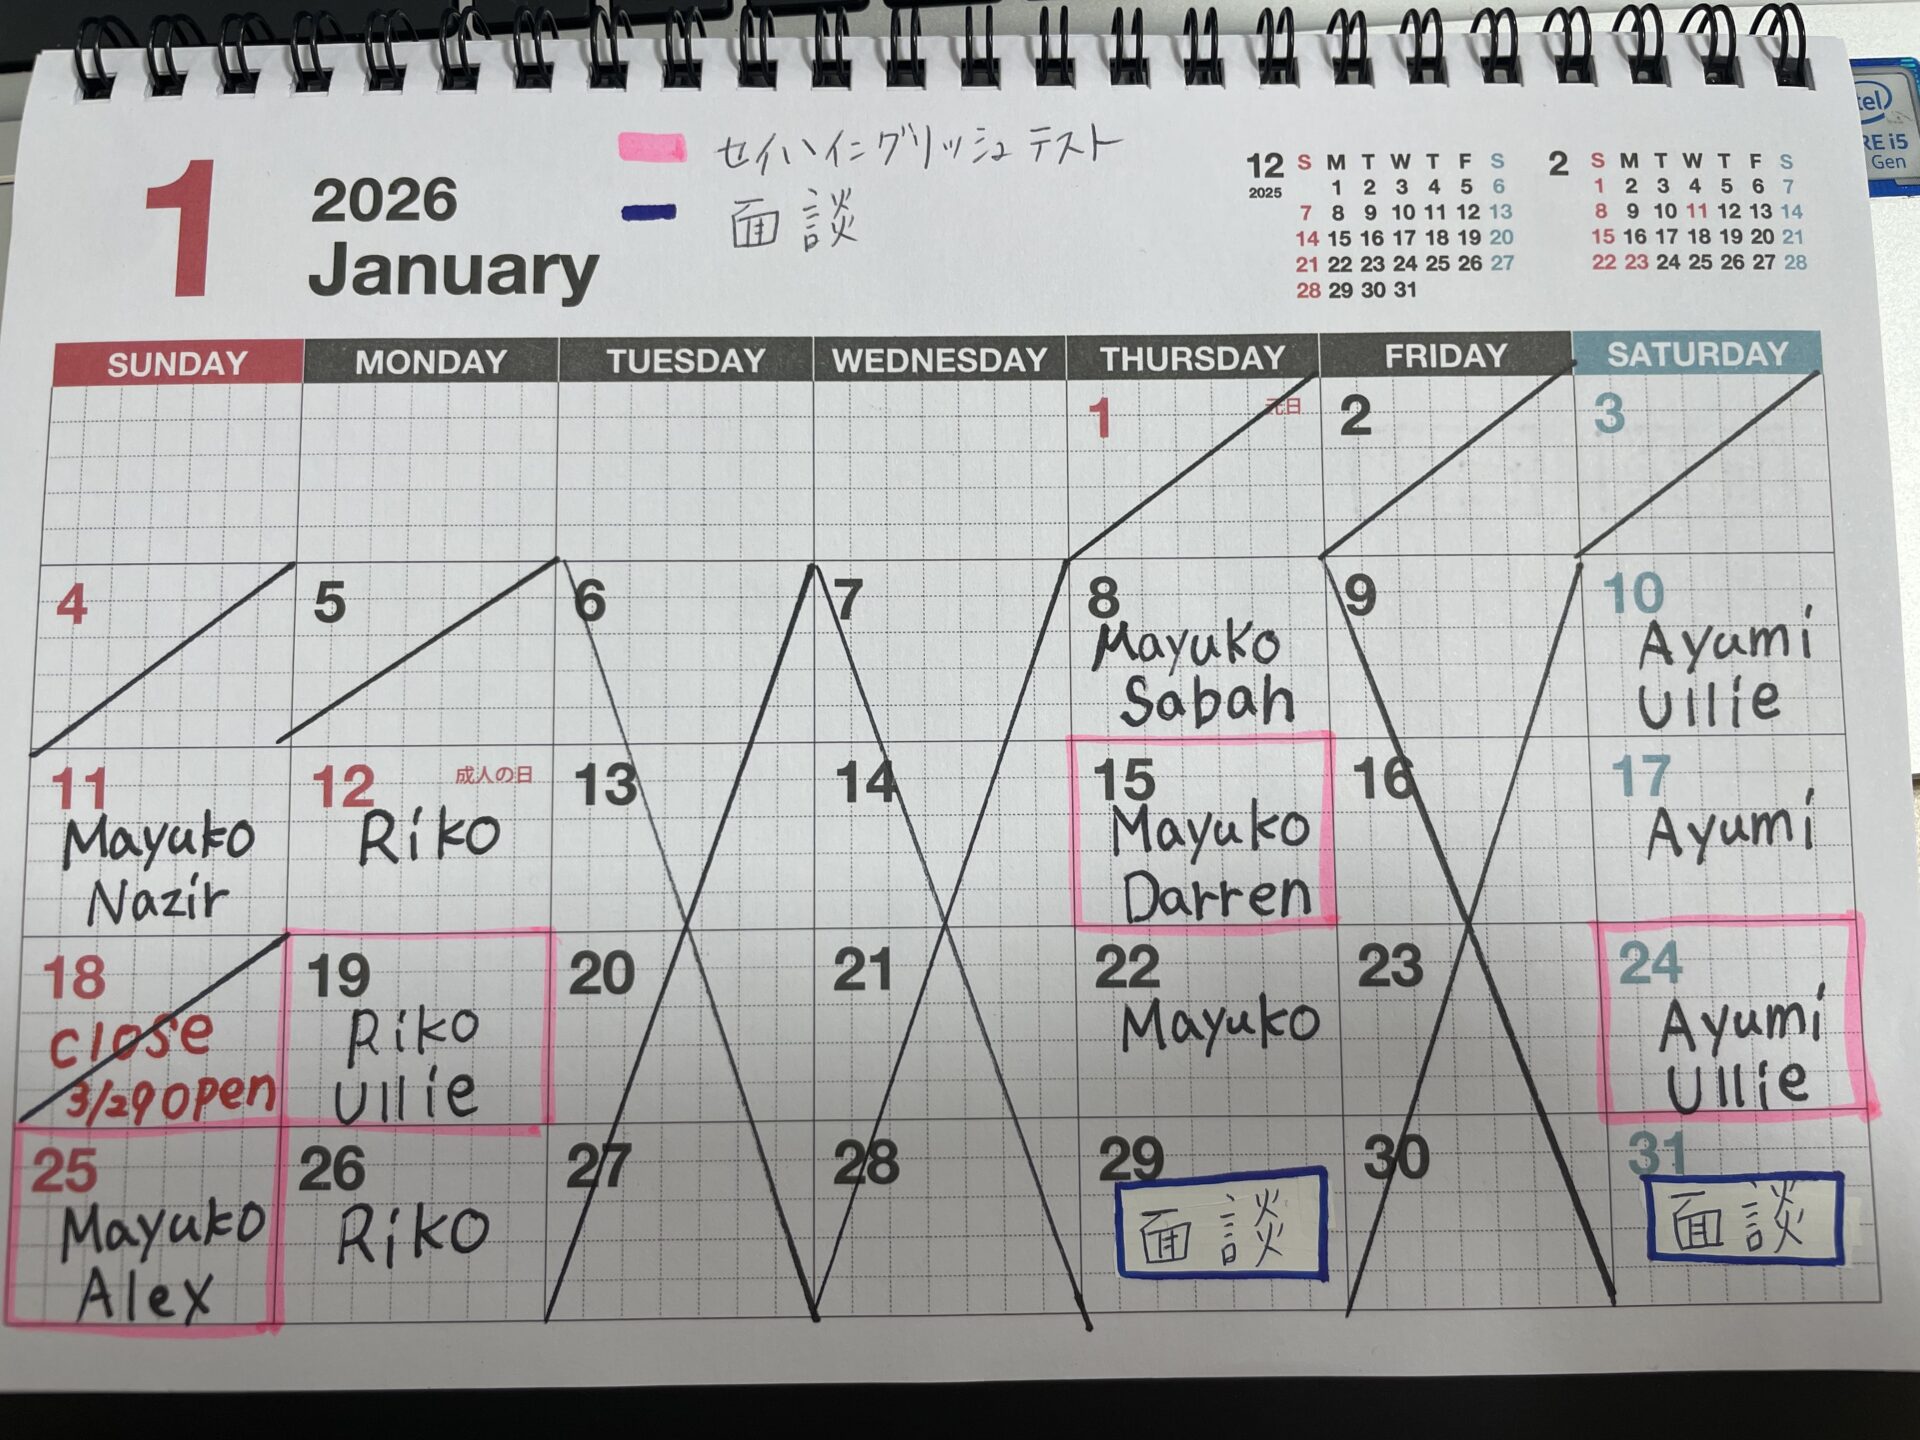 1
2026
January
セイハイングリッシュテスト
面談
12
2025
S M T W T F S
1 2 3 4 5 6
7 8 9 10 11 12 13
14 15 16 17 18 19 20
21 22 23 24 25 26 27
28 29 30 31
2
S M T W T F S
1 2 3 4 5 6 7
8 9 10 11 12 13 14
15 16 17 18 19 20 21
22 23 24 25 26 27 28
i5
Gen
SUNDAY MONDAY TUESDAY WEDNESDAY THURSDAY FRIDAY SATURDAY
1 元日 2 3
4 5 6 7 8 9 10
Mayuko Ayumi
Sabah Ullie
11 12 成人の日 13 14 15 16 17
Mayuko Riko Mayuko Ayumi
Nazir Darren
18 19 20 21 22 23 24
close Riko Mayuko Ayumi
3/29 open Ullie Ullie
25 26 27 28 29 30 31
Mayuko Riko 面談 面談
Alex